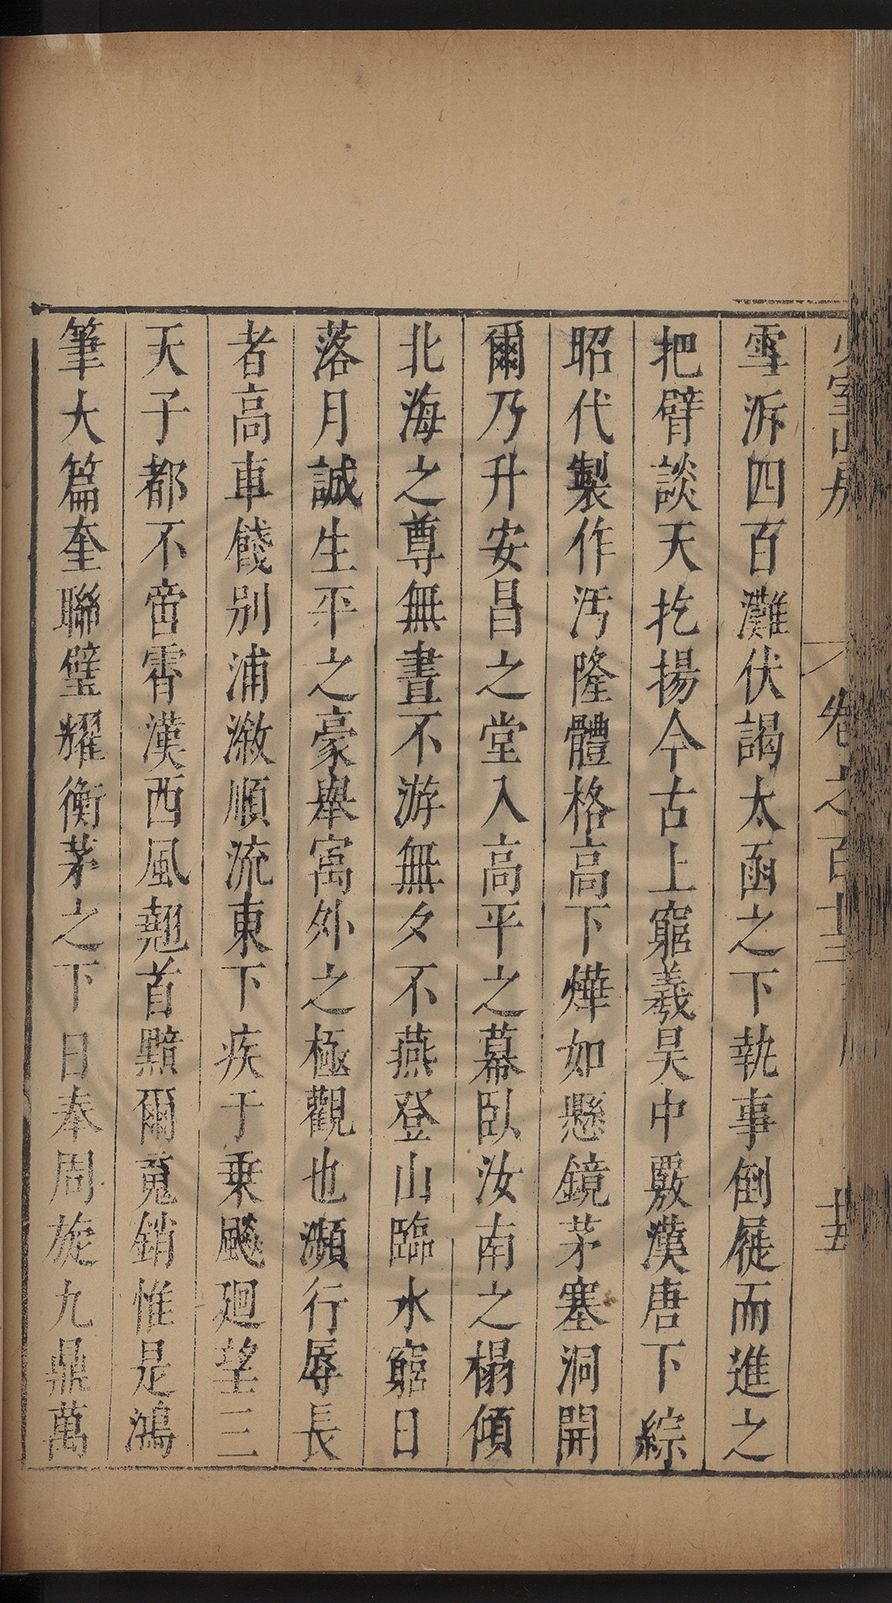 少室山房
卷之百十三
十五
雪泝四百灘伏謁太函之下執事倒屣而進之
把臂談天扢揚今古上窮羲昊中覈漢唐下綜
昭代製作汚隆體格高下燁如懸鏡茅塞洞開
爾乃升安昌之堂入高平之幕臥汝南之榻傾
北海之尊無晝不游無夕不燕登山臨水窮日
落月誠生平之豪舉寓外之極觀也瀕行辱長
者高車餞別浦溆順流東下疾于乗飈廻望三
天子都不啻霄漢西風翹首黯爾䰟銷惟是鴻
筆大篇奎聯璧耀衡茅之下日奉周旋九鼎萬